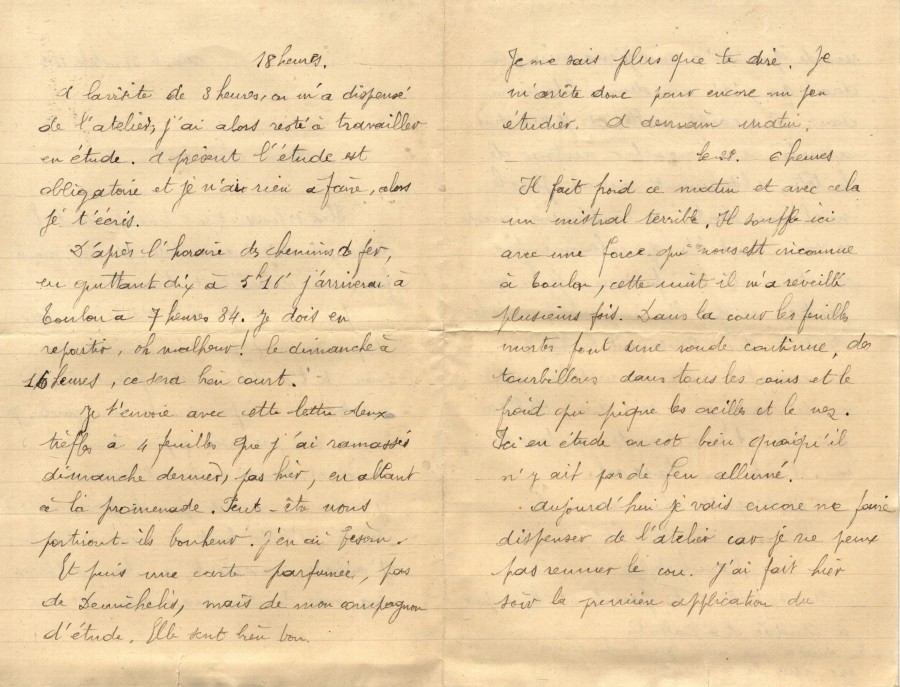 18 heures.
A la visite de 3 heures, on m'a dispensé
de l'atelier, j'ai alors resté à travailler
en étude. A présent l'étude est
obligatoire et je n'ai rien a faire, alors
je t'écris.
D'après l'horaire des chemins de fer,
en quittant d'ix à 5h16 j'arriverai à
Toulon à 7 heures 34. Je dois en
repartir, oh malheur! le dimanche à
16 heures, ce sera bien court.
Je t'envoie avec cette lettre deux
trèfles à 4 feuilles que j'ai ramassés
dimanche dernier, pas hier, en allant
à la promenade. Peut-être nous
portiront-ils bonheur. J'en ai besoin.
Et puis une carte parfumée, pas
de Demichelis, mais de mon compagnon
d'étude. Elle sent bien bon
Je ne sais plus que te dire. Je
m'arrête donc pour encore un peu
étudier. A demain matin.
Le 28. 6 heures
Il fait froid ce matin et avec cela
un mistral terrible. Il souffle ici
avec une force qui nous est inconnue
à Toulon, cette nuit il m'a réveillé
plusieurs fois. Dans la cour les feuilles
mortes font une ronde continue, des
tourbillons dans tous les coins et le
froid qui pique les oreilles et le nez.
Ici en étude on est bien quoiqu'il
n'y ait pas de feu allumé.
Aujourd'hui je vais encore me faire
dispenser de l'atelier car je ne peux
pas remuer le cou. J'ai fait hier
soir la première application du